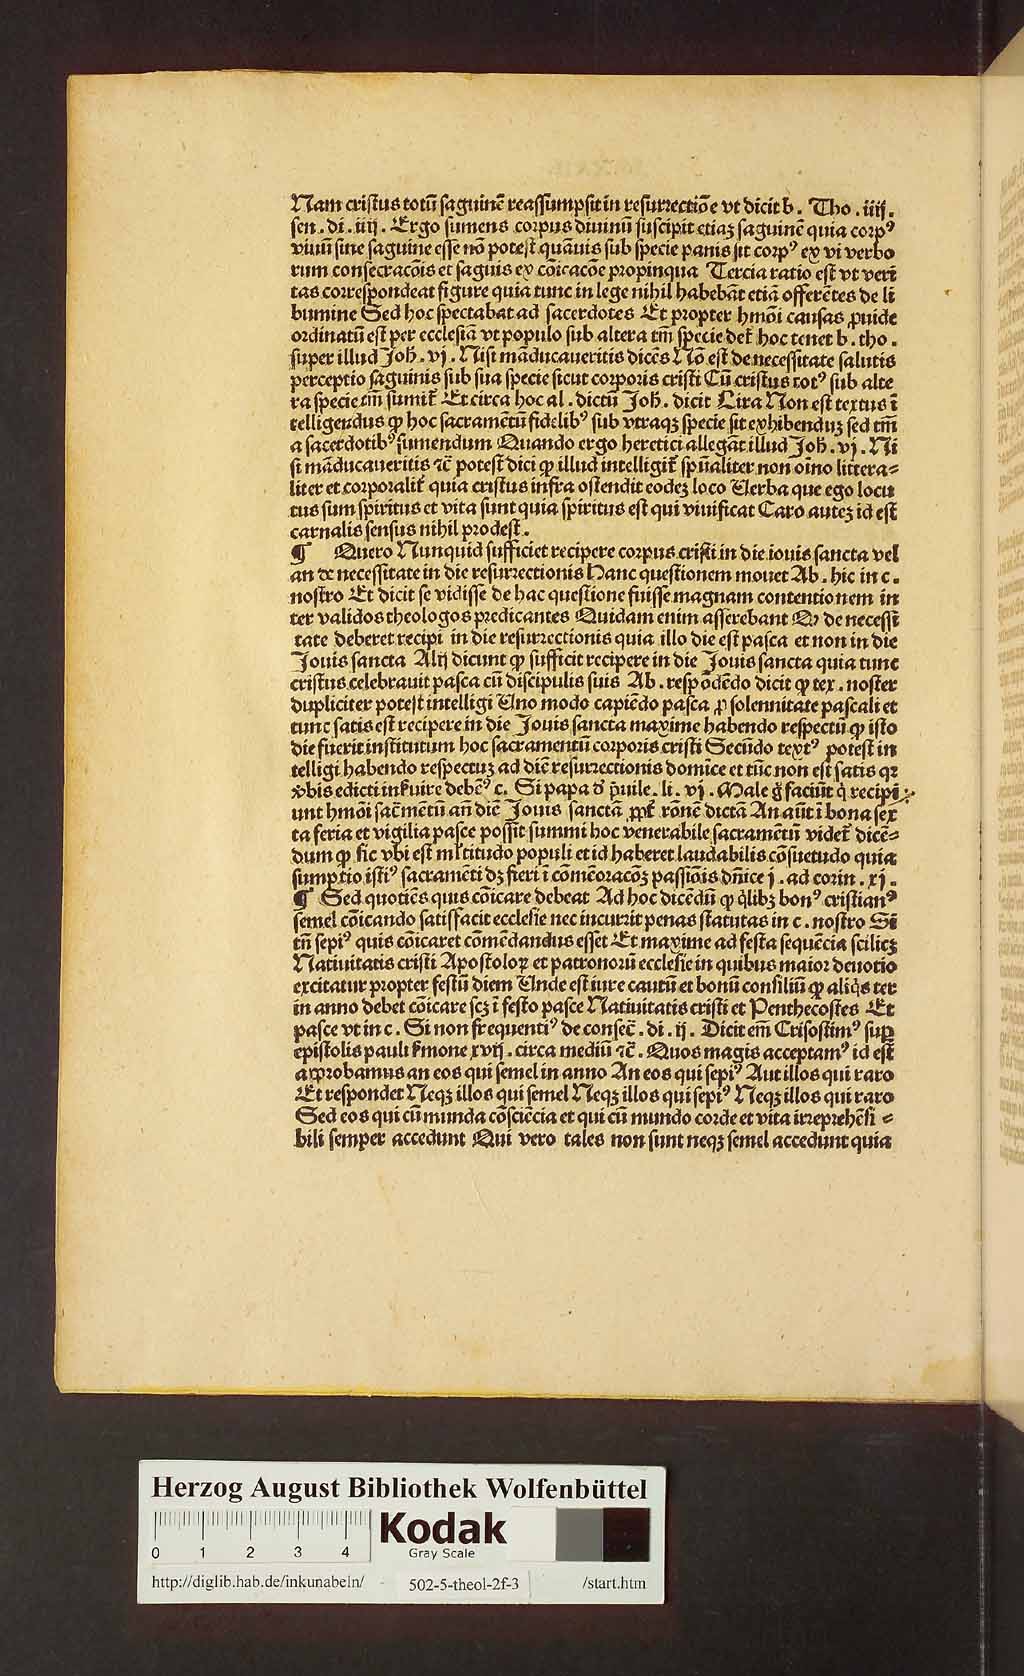 Nam cristus totū saguinē reassumpsit in resurrectiōe vt dicit b. Tho. iiij.
sen. di. iiij. Ergo sumens corpus diuinū suscipit etiaꝫ saguinē quia corpꝰ
viuū sine saguine esse nō potest quāuis sub specie panis sit corpꝰ ex vi verbo
rum consecracōis et saguis ex cōicacōe propinqua Tercia ratio est vt veri
tas correspondeat figure quia tunc in lege nihil habebāt etiā offerētes de li
bumine Sed hoc spectabat ad sacerdotes Et propter hmōi causas ꝓuide
ordinatū est per ecclesiā vt populo sub altera tm̄ specie det̄ hoc tenet b. tho.
super illud Joh̄. vj. Nisi māducaueritis dicēs Nō est de necessitate salutis
perceptio saguinis sub sua specie sicut corporis cristi Cū cristus totꝰ sub alte
ra specie tm̄ sumit̄ Et circa hoc al. dictū Joh̄. dicit Lira Non est textus ī
telligendus ꝙ hoc sacramētū fidelibꝰ sub vtraqꝫ specie sit exhibenduꝫ sed tm̄
a sacerdotibꝰ sumendum Quando ergo heretici allegāt illud Joh̄. vj. Ni
si māducaueritis ⁊c̄ potest dici ꝙ illud intelligit̄ spūaliter non oīno littera⸗
liter et corporalit̄ quia cristus infra ostendit eodeꝫ loco Verba que ego locu
tus sum spiritus et vita sunt quia spiritus est qui viuificat Caro auteꝫ id est
carnalis sensus nihil prodest.
¶ Quero Nunquid sufficiet recipere corpus cristi in die iouis sancta vel
an de necessitate in die resurrectionis Hanc questionem mouet Ab. hic in c.
nostro Et dicit se vidisse de hac questione fuisse magnam contentionem in
ter validos theologos predicantes Quidam enim asserebant Ꝙ de necessi
tate deberet recipi in die resurrectionis quia illo die est pasca et non in die
Jouis sancta Alij dicunt ꝙ sufficit recipere in die Jouis sancta quia tunc
cristus celebrauit pasca cū discipulis suis Ab. respōdēdo dicit ꝙ tex. noster
dupliciter potest intelligi Uno modo capiēdo pasca ꝓ solennitate pascali et
tunc satis est recipere in die Jouis sancta maxime habendo respectū ꝙ isto
die fuerit institutum hoc sacramentū corporis cristi Secūdo textꝰ potest in
telligi habendo respectuꝫ ad diē resurrectionis domīce et tūc non est satis qꝛ
v̄bis edicti inẜuire debēꝰ c. Si papa d̄ p̄uile. li. vj. Male g̊ faciūt q̇ recipi
unt hmōi sac̄mētū an̄ diē Jouis sanctā ꝓpt̄ rōnē dictā An aūt ī bona sex
ta feria et vigilia pasce possit summi hoc venerabile sacramētū videt̄ dicē⸗
dum ꝙ sic vbi est ml̄titudo populi et id haberet laudabilis cōsuetudo quia
sumptio istiꝰ sacramēti dꝫ fieri ī comēoracōꝫ passiōis dn̄ice j. ad corin. xj.
¶ Sed quotiēs quis cōicare debeat Ad hoc dicēdū ꝙ q̇libꝫ bonꝰ cristianꝰ
semel cōicando satisfacit ecclesie nec incurrit penas statutas in c. nostro Si
tn̄ sepiꝰ quis cōicaret cōmēdandus esset Et maxime ad festa sequēcia scilicꝫ
Natiuitatis cristi Apostoloꝝ et patronorū ecclesie in quibus maior deuotio
excitatur propter festū diem Unde est iure cautū et bonū consiliū ꝙ aliq̇s ter
in anno debet cōicare scꝫ ī festo pasce Natiuitatis cristi et Penthecostes Et
pasce vt in c. Si non frequentiꝰ de consec̄. di. ij. Dicit em̄ Crisostimꝰ suꝑ
epistolis pauli ẜmone xvij. circa mediū ⁊c̄. Quos magis acceptamꝰ id est
approbamus an eos qui semel in anno An eos qui sepiꝰ Aut illos qui raro
Et respondet Neqꝫ illos qui semel Neqꝫ illos qui sepiꝰ Neqꝫ illos qui raro
Sed eos qui cū munda cōsciēcia et qui cū mundo corde et vita irreprehēsi⸗
bili semper accedunt Qui vero tales non sunt neqꝫ semel accedunt quia
Herzog August Bibliothek Wolfenbüttel
Kodak
Gray Scale
0 1 2 3 4
http://diglib.hab.de/inkunabeln/ - 502-5-theol-2f-3 /start.htm